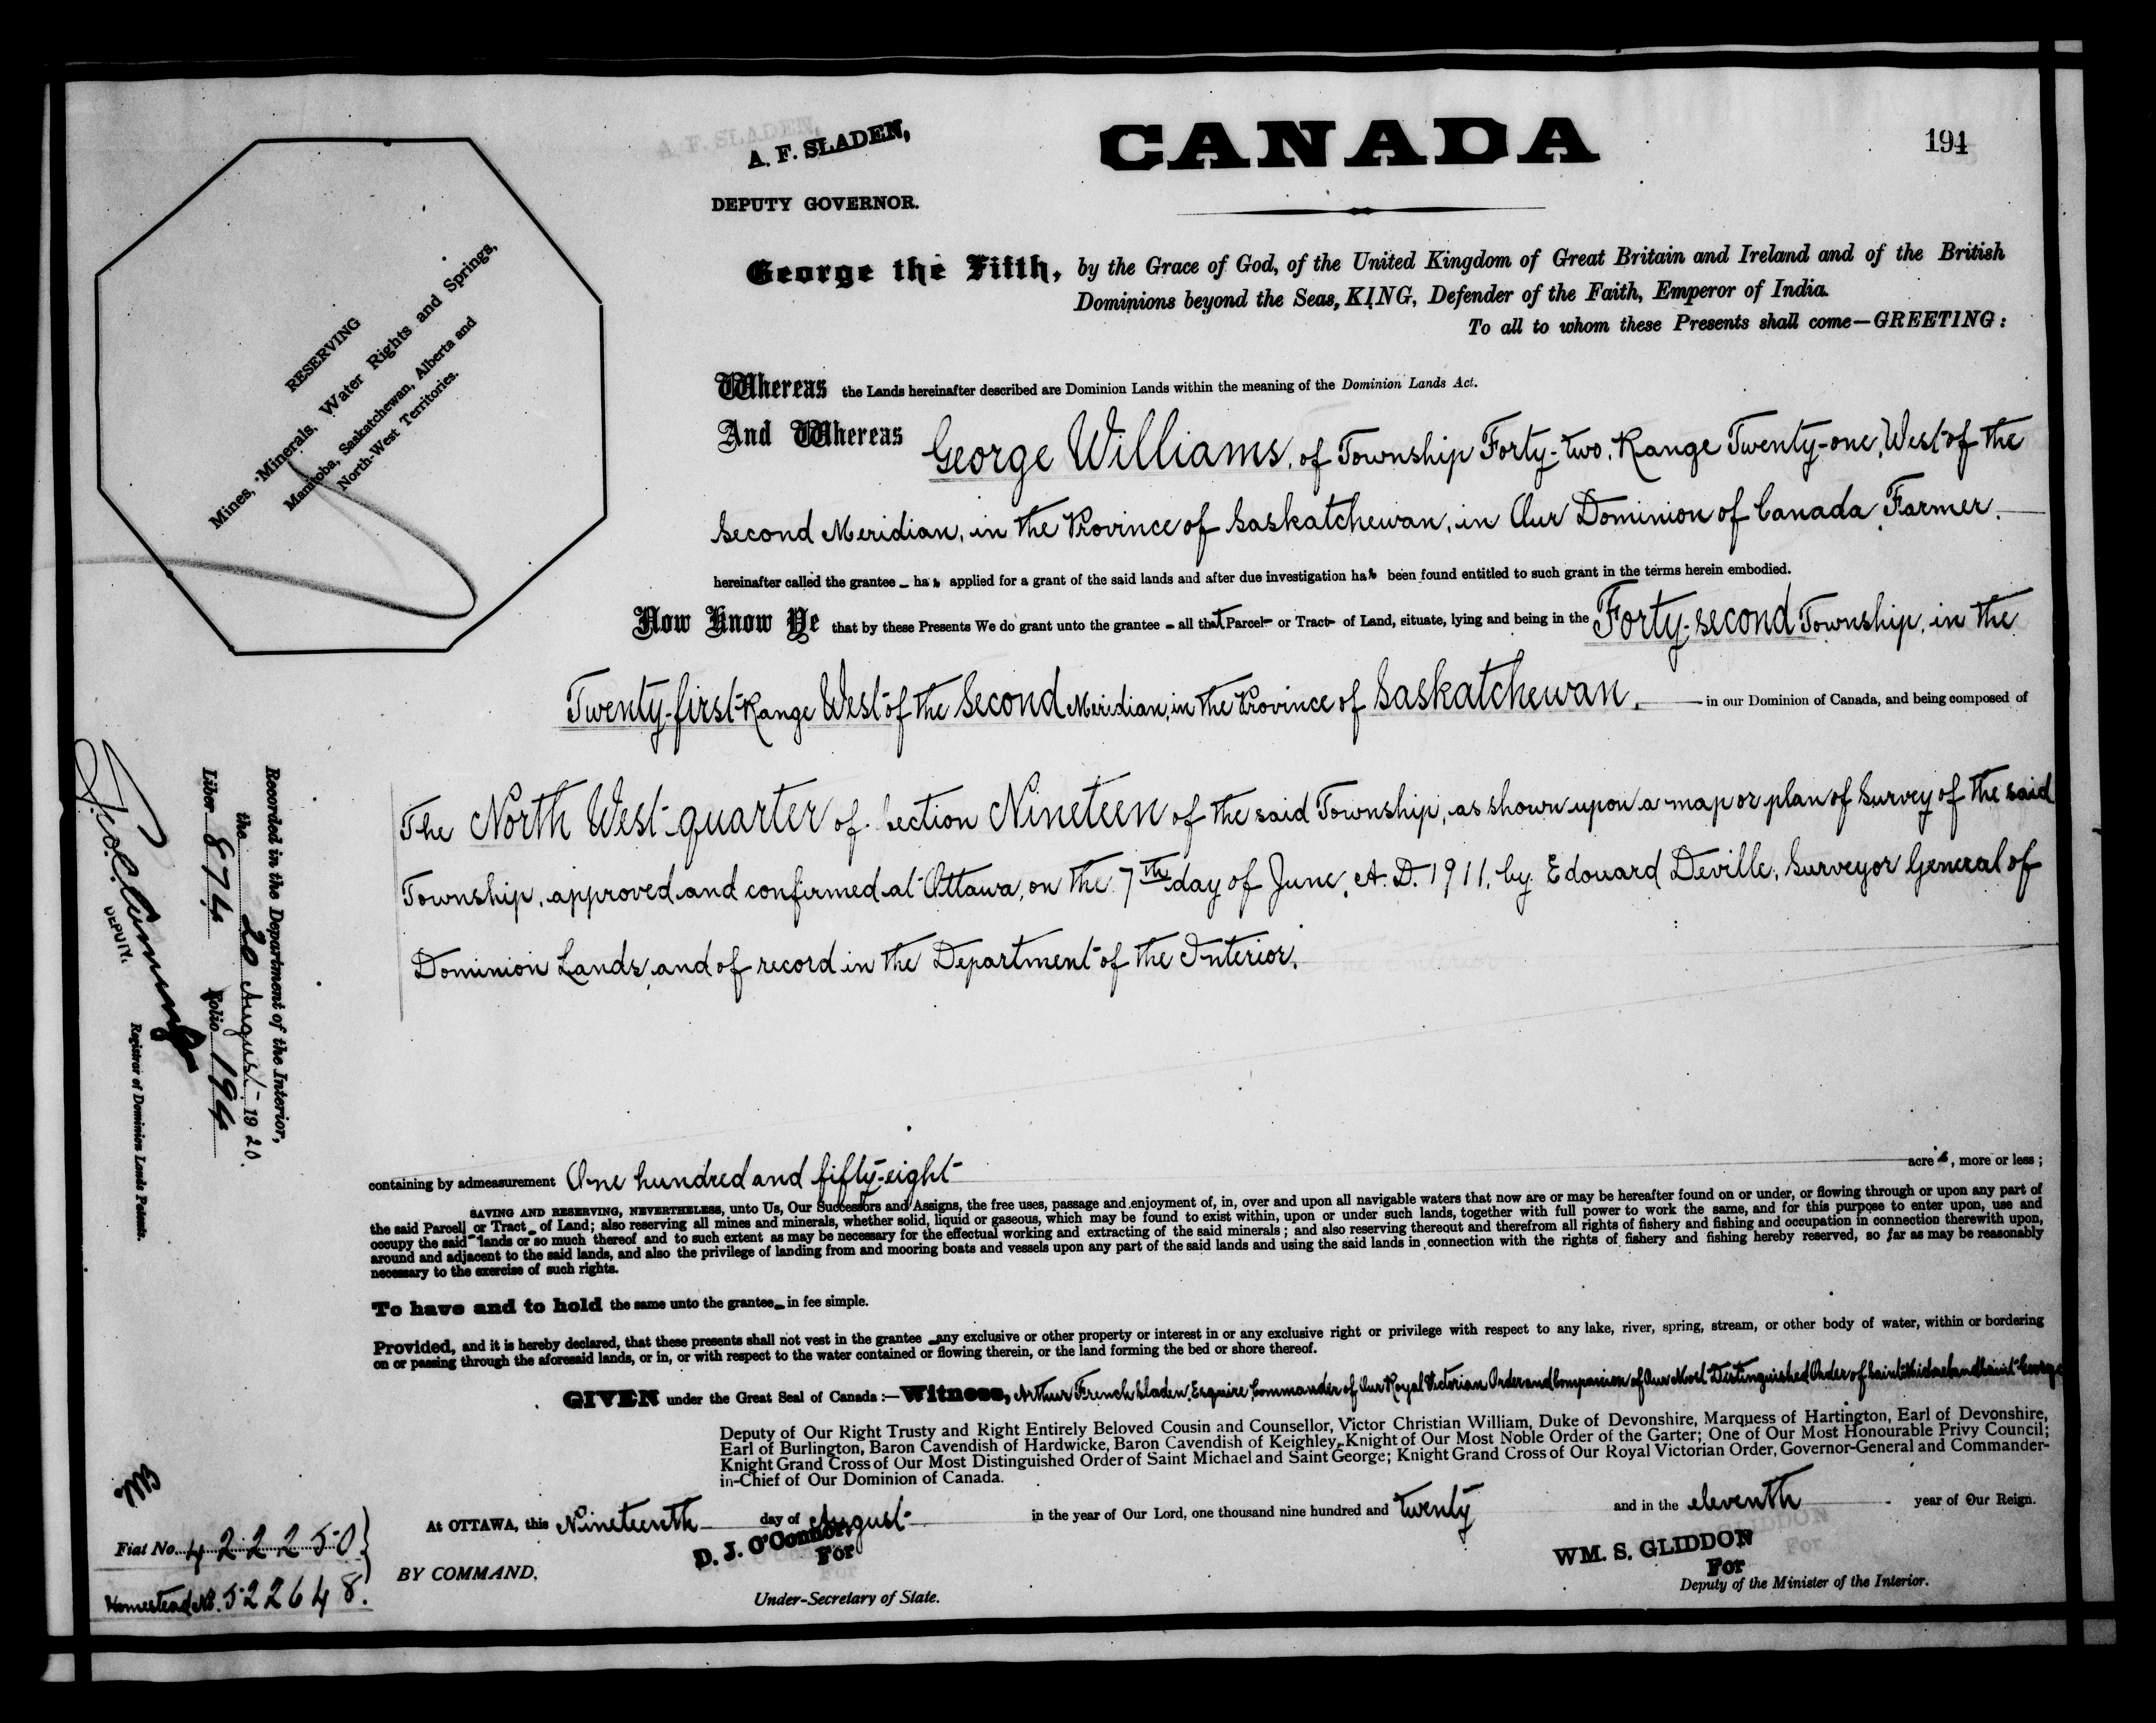 A. F. SLADEN,
DEPUTY GOVERNOR.
CANADA
194
RESERVING
Mines, Minerals, Water Rights and Springs,
Manitoba, Saskatchewan, Alberta and
North-West Territories.
George the Fifth, by the Grace of God, of the United Kingdom of Great Britain and Ireland and of the British
Dominions beyond the Seas, KING, Defender of the Faith, Emperor of India.
To all to whom these Presents shall come—GREETING:
Whereas the Lands hereinafter described are Dominion Lands within the meaning of the Dominion Lands Act.
And Whereas George Williams, of Township Forty-two, Range Twenty-one, West of the
Second Meridian, in the Province of Saskatchewan, in Our Dominion of Canada, Farmer.
hereinafter called the grantee has applied for a grant of the said lands and after due investigation has been found entitled to such grant in the terms herein embodied.
Now Know Ye that by these Presents We do grant unto the grantee - all that Parcel or Tract of Land, situate, lying and being in the Forty-second Township, in the
Twenty-first Range West of the Second Meridian, in the Province of Saskatchewan, in our Dominion of Canada, and being composed of
The North West quarter of Section Nineteen of the said Township, as shown upon a map or plan of Survey of the said
Township, approved and confirmed at Ottawa, on the 7th day of June, A. D. 1911, by Edouard Deville, Surveyor General of
Dominion Lands, and of record in the Department of the Interior.
Recorded in the Department of the Interior,
the 20 August 1920.
Liber 874 Folio 194
DEPUTY.
Registrar of Dominion Lands Patents.
containing by admeasurement One hundred and fifty-eight acres, more or less;
SAVING AND RESERVING, NEVERTHELESS, unto Us, Our Successors and Assigns, the free uses, passage and enjoyment of, in, over and upon all navigable waters that now are or may be hereafter found on or under, or flowing through or upon any part of
the said Parcel or Tract of Land; also reserving all mines and minerals, whether solid, liquid or gaseous, which may be found to exist within, upon or under such lands, together with full power to work the same, and for this purpose to enter upon, use and
occupy the said lands or so much thereof and to such extent as may be necessary for the effectual working and extracting of the said minerals; and also reserving thereout and therefrom all rights of fishery and fishing and occupation in connection therewith upon,
around and adjacent to the said lands, and also the privilege of landing from and mooring boats and vessels upon any part of the said lands and using the said lands in connection with the rights of fishery and fishing hereby reserved, so far as may be reasonably
necessary to the exercise of such rights.
To have and to hold the same unto the grantee in fee simple.
Provided, and it is hereby declared, that these presents shall not vest in the grantee any exclusive or other property or interest in or any exclusive right or privilege with respect to any lake, river, spring, stream, or other body of water, within or bordering
on or passing through the aforesaid lands, or in, or with respect to the water contained or flowing therein, or the land forming the bed or shore thereof.
GIVEN under the Great Seal of Canada:—Witness, Arthur French Sladen, Esquire, Commander of Our Royal Victorian Order and Companion of Our Most Distinguished Order of Saint Michael and Saint George
Deputy of Our Right Trusty and Right Entirely Beloved Cousin and Counsellor, Victor Christian William, Duke of Devonshire, Marquess of Hartington, Earl of Devonshire,
Earl of Burlington, Baron Cavendish of Hardwicke, Baron Cavendish of Keighley, Knight of Our Most Noble Order of the Garter; One of Our Most Honourable Privy Council;
Knight Grand Cross of Our Most Distinguished Order of Saint Michael and Saint George; Knight Grand Cross of Our Royal Victorian Order, Governor-General and Commander-
in-Chief of Our Dominion of Canada.
At OTTAWA, this Nineteenth day of August in the year of Our Lord, one thousand nine hundred and twenty and in the eleventh year of Our Reign.
Fiat No. 422250
Homestead No. 522648.
BY COMMAND,
D. J. O'Connor
For
Under-Secretary of State.
WM. S. GLIDDON
For
Deputy of the Minister of the Interior.